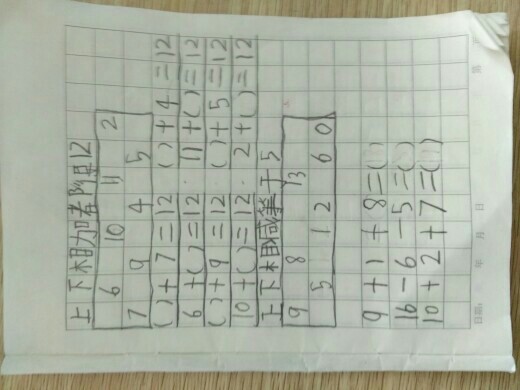 上下相加都是12
6 10 11 2
7 9 4 5
( )+7=12 ( )+4=12
6+( )=12 11+( )=12
( )+9=12 ( )+5=12
10+( )=12 2+( )=12
上下相减等于5
9 8 13
5 12 6 0
9+1+8=( )
16-6-5=( )
10+2+7=( )
日期: 年 月 日 第